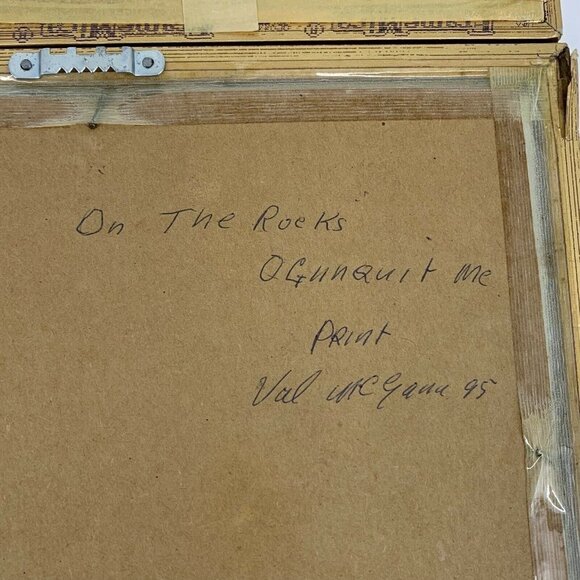 On The Rocks
OGunquit Me
Print
Val McGann 95